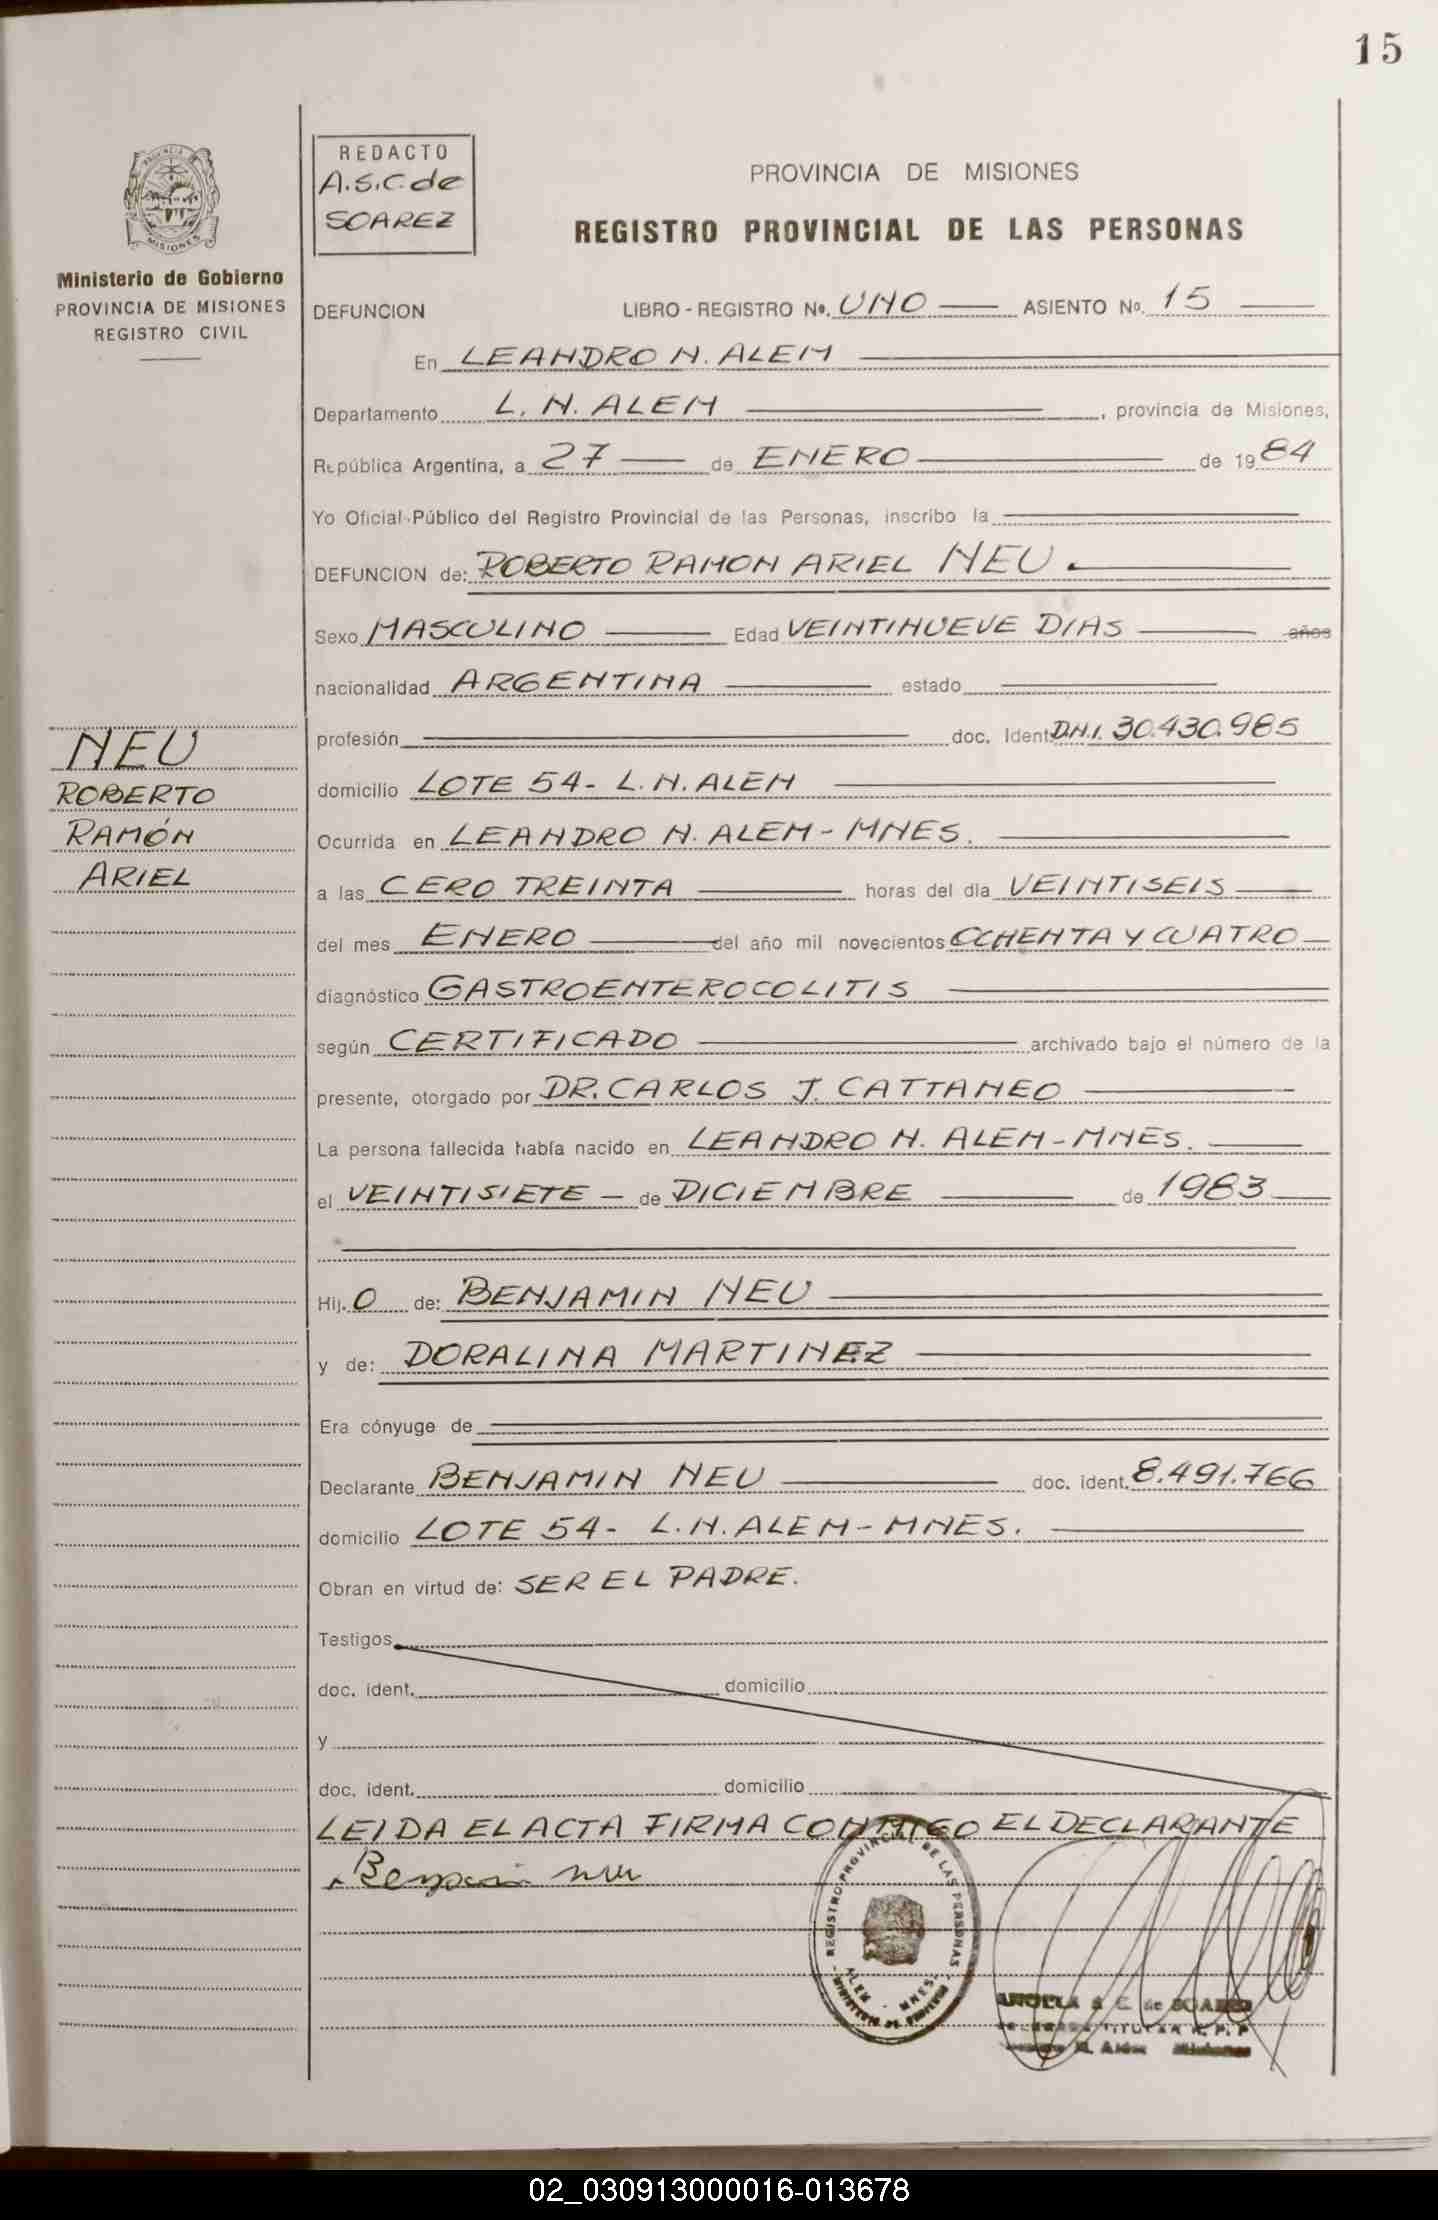 15
REDACTO
A.S.C. de
SOAREZ
PROVINCIA DE MISIONES
REGISTRO PROVINCIAL DE LAS PERSONAS
PROVINCIA DE
MISIONES
Ministerio de Gobierno
PROVINCIA DE MISIONES
REGISTRO CIVIL
DEFUNCION LIBRO - REGISTRO Nº. UNO ASIENTO Nº. 15
En LEANDRO N. ALEM
Departamento L. N. ALEM, provincia de Misiones,
República Argentina, a 27 de ENERO de 1984
Yo Oficial Público del Registro Provincial de las Personas, inscribo la
DEFUNCION de: ROBERTO RAMON ARIEL NEU.
Sexo MASCULINO Edad VEINTINUEVE DIAS años
nacionalidad ARGENTINA estado
profesión doc. Ident. D.N.I. 30.430.985
domicilio LOTE 54- L.N. ALEM
Ocurrida en LEANDRO N. ALEM - MNES.
a las CERO TREINTA horas del día VEINTISEIS
del mes ENERO del año mil novecientos OCHENTA Y CUATRO
diagnóstico GASTROENTEROCOLITIS
según CERTIFICADO archivado bajo el número de la
presente, otorgado por DR. CARLOS J. CATTANEO
La persona fallecida había nacido en LEANDRO N. ALEM - MNES.
el VEINTISIETE de DICIEMBRE de 1983
Hij O de: BENJAMIN NEU
y de: DORALINA MARTINEZ
Era cónyuge de
Declarante BENJAMIN NEU doc. ident. 8.491.766
domicilio LOTE 54- L.N. ALEM - MNES.
Obran en virtud de: SER EL PADRE.
Testigos
doc. ident. domicilio
y
doc. ident. domicilio
LEIDA EL ACTA FIRMA CONMIGO EL DECLARANTE
NEU
ROBERTO
RAMÓN
ARIEL
REGISTRO PROVINCIAL DE LAS PERSONAS
ALEM - MNES.
MINISTERIO DE GOBIERNO
S. C. de SOAREZ
TITULAR R. P. P.
N. Alem Misiones
02_030913000016-013678